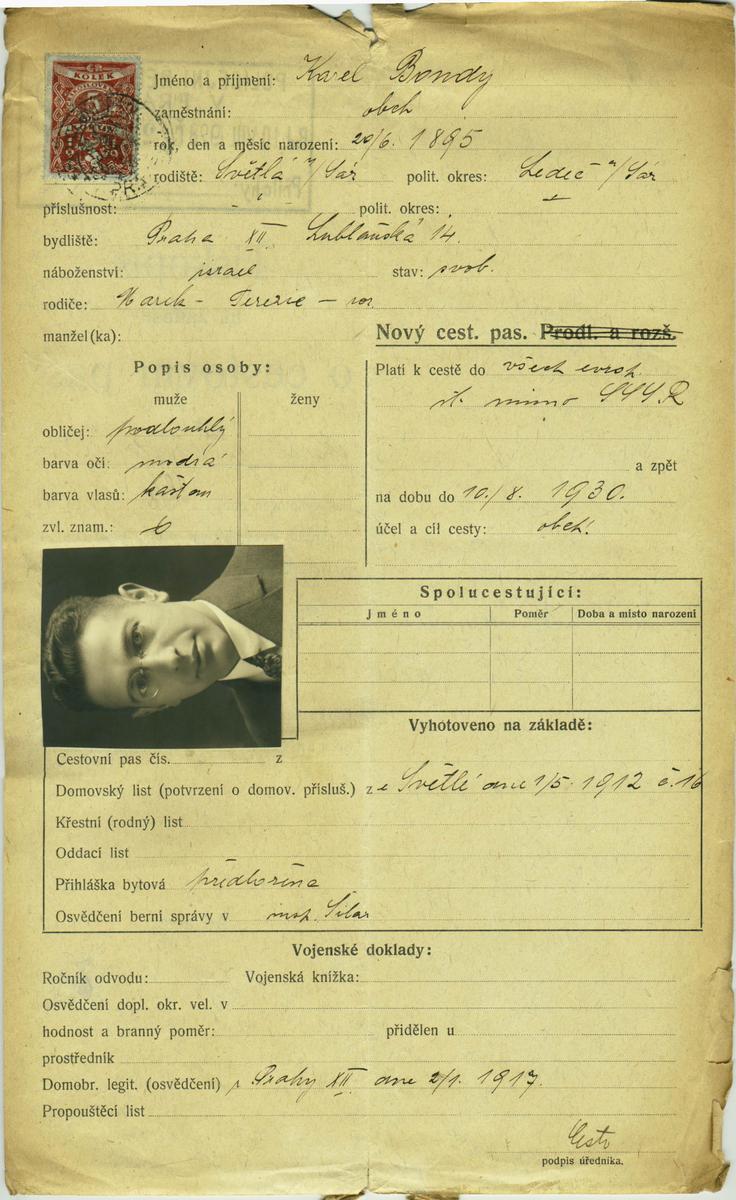 KOLEK
5
Jméno a příjmení: Karel Bondy
zaměstnání: obch
rok, den a měsíc narození: 20/6. 1895
rodiště: Světlá n/Sáz polit. okres: Ledeč n/Sáz
příslušnost: polit. okres:
bydliště: Praha XII. Lublaňská 14.
náboženství: israel stav: svob.
rodiče: Marek - Terezie - roz
manžel(ka):
Nový cest. pas. Prodl. a rozš.
Popis osoby:
muže ženy
obličej: podlouhlý
barva očí: modrá
barva vlasů: kaštan
zvl. znam.:
Platí k cestě do všech evrop.
st. mimo SSSR
a zpět
na dobu do 10./8. 1930.
účel a cíl cesty: obch.
Spolucestující:
Jméno Poměr Doba a místo narození
Vyhotoveno na základě:
Cestovní pas čís. z
Domovský list (potvrzení o domov. přísluš.) z e Světlé dne 1/5. 1912 č. 16
Křestní (rodný) list
Oddací list
Přihláška bytová předložena
Osvědčení berní správy v
Vojenské doklady:
Ročník odvodu: Vojenská knížka:
Osvědčení dopl. okr. vel. v
hodnost a branný poměr: přidělen u
prostředník
Domobr. legit. (osvědčení) z Prahy XII dne 2/1. 1917.
Propouštěcí list
podpis úředníka.